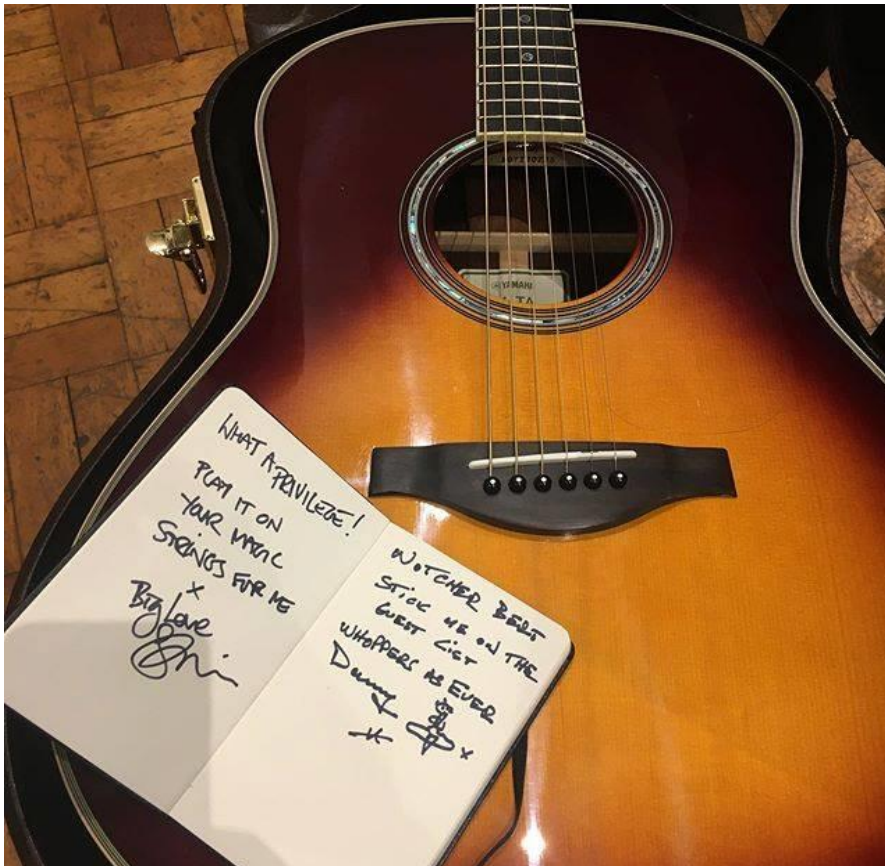 YAMAHA
WHAT A PRIVILEGE!
PLAY IT ON
YOUR MAGIC
STRINGS FOR ME
x
Big Love
WOTCHER BERT
STICK ME ON THE
GUEST LIST
WHOPPERS AS EVER
Danny
x